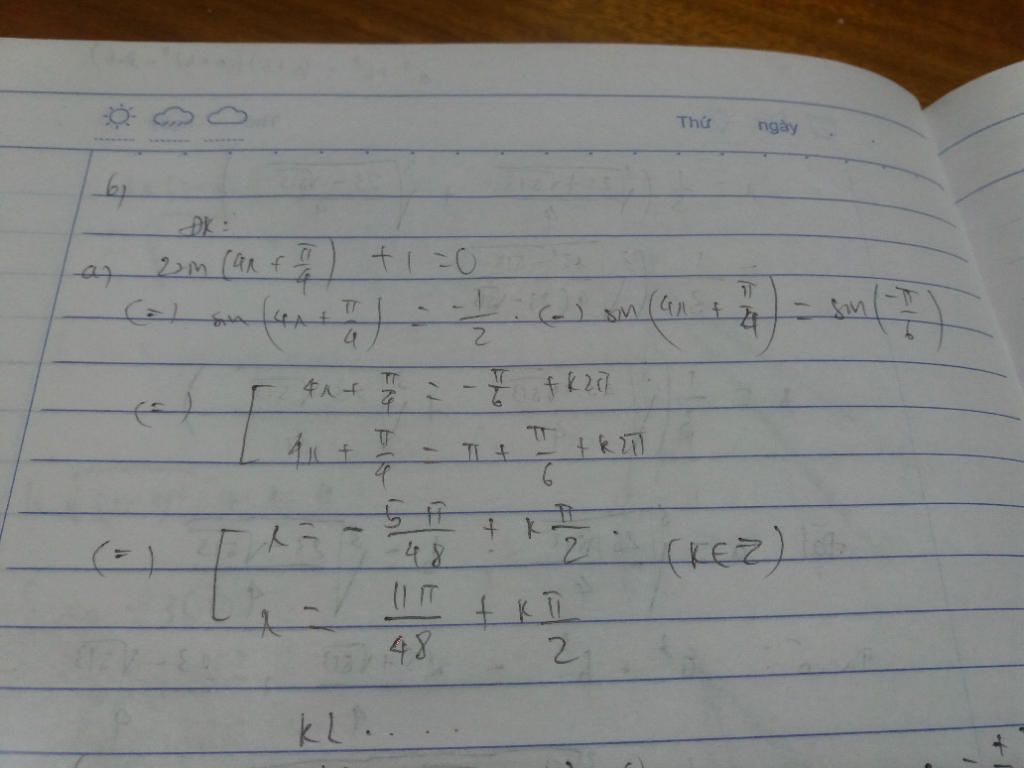 Thứ ngày
b,
ĐK:
a) 2sin(4x + π/4) + 1 = 0
(=) sin(4x + π/4) = -1/2. (=) sin(4x + π/4) = sin(-π/6)
(=) [ 4x + π/4 = -π/6 + k2π
4x + π/4 = π + π/6 + k2π
(=) [ x = -5π/48 + kπ/2. (k∈Z)
x = 11π/48 + kπ/2
KL.....